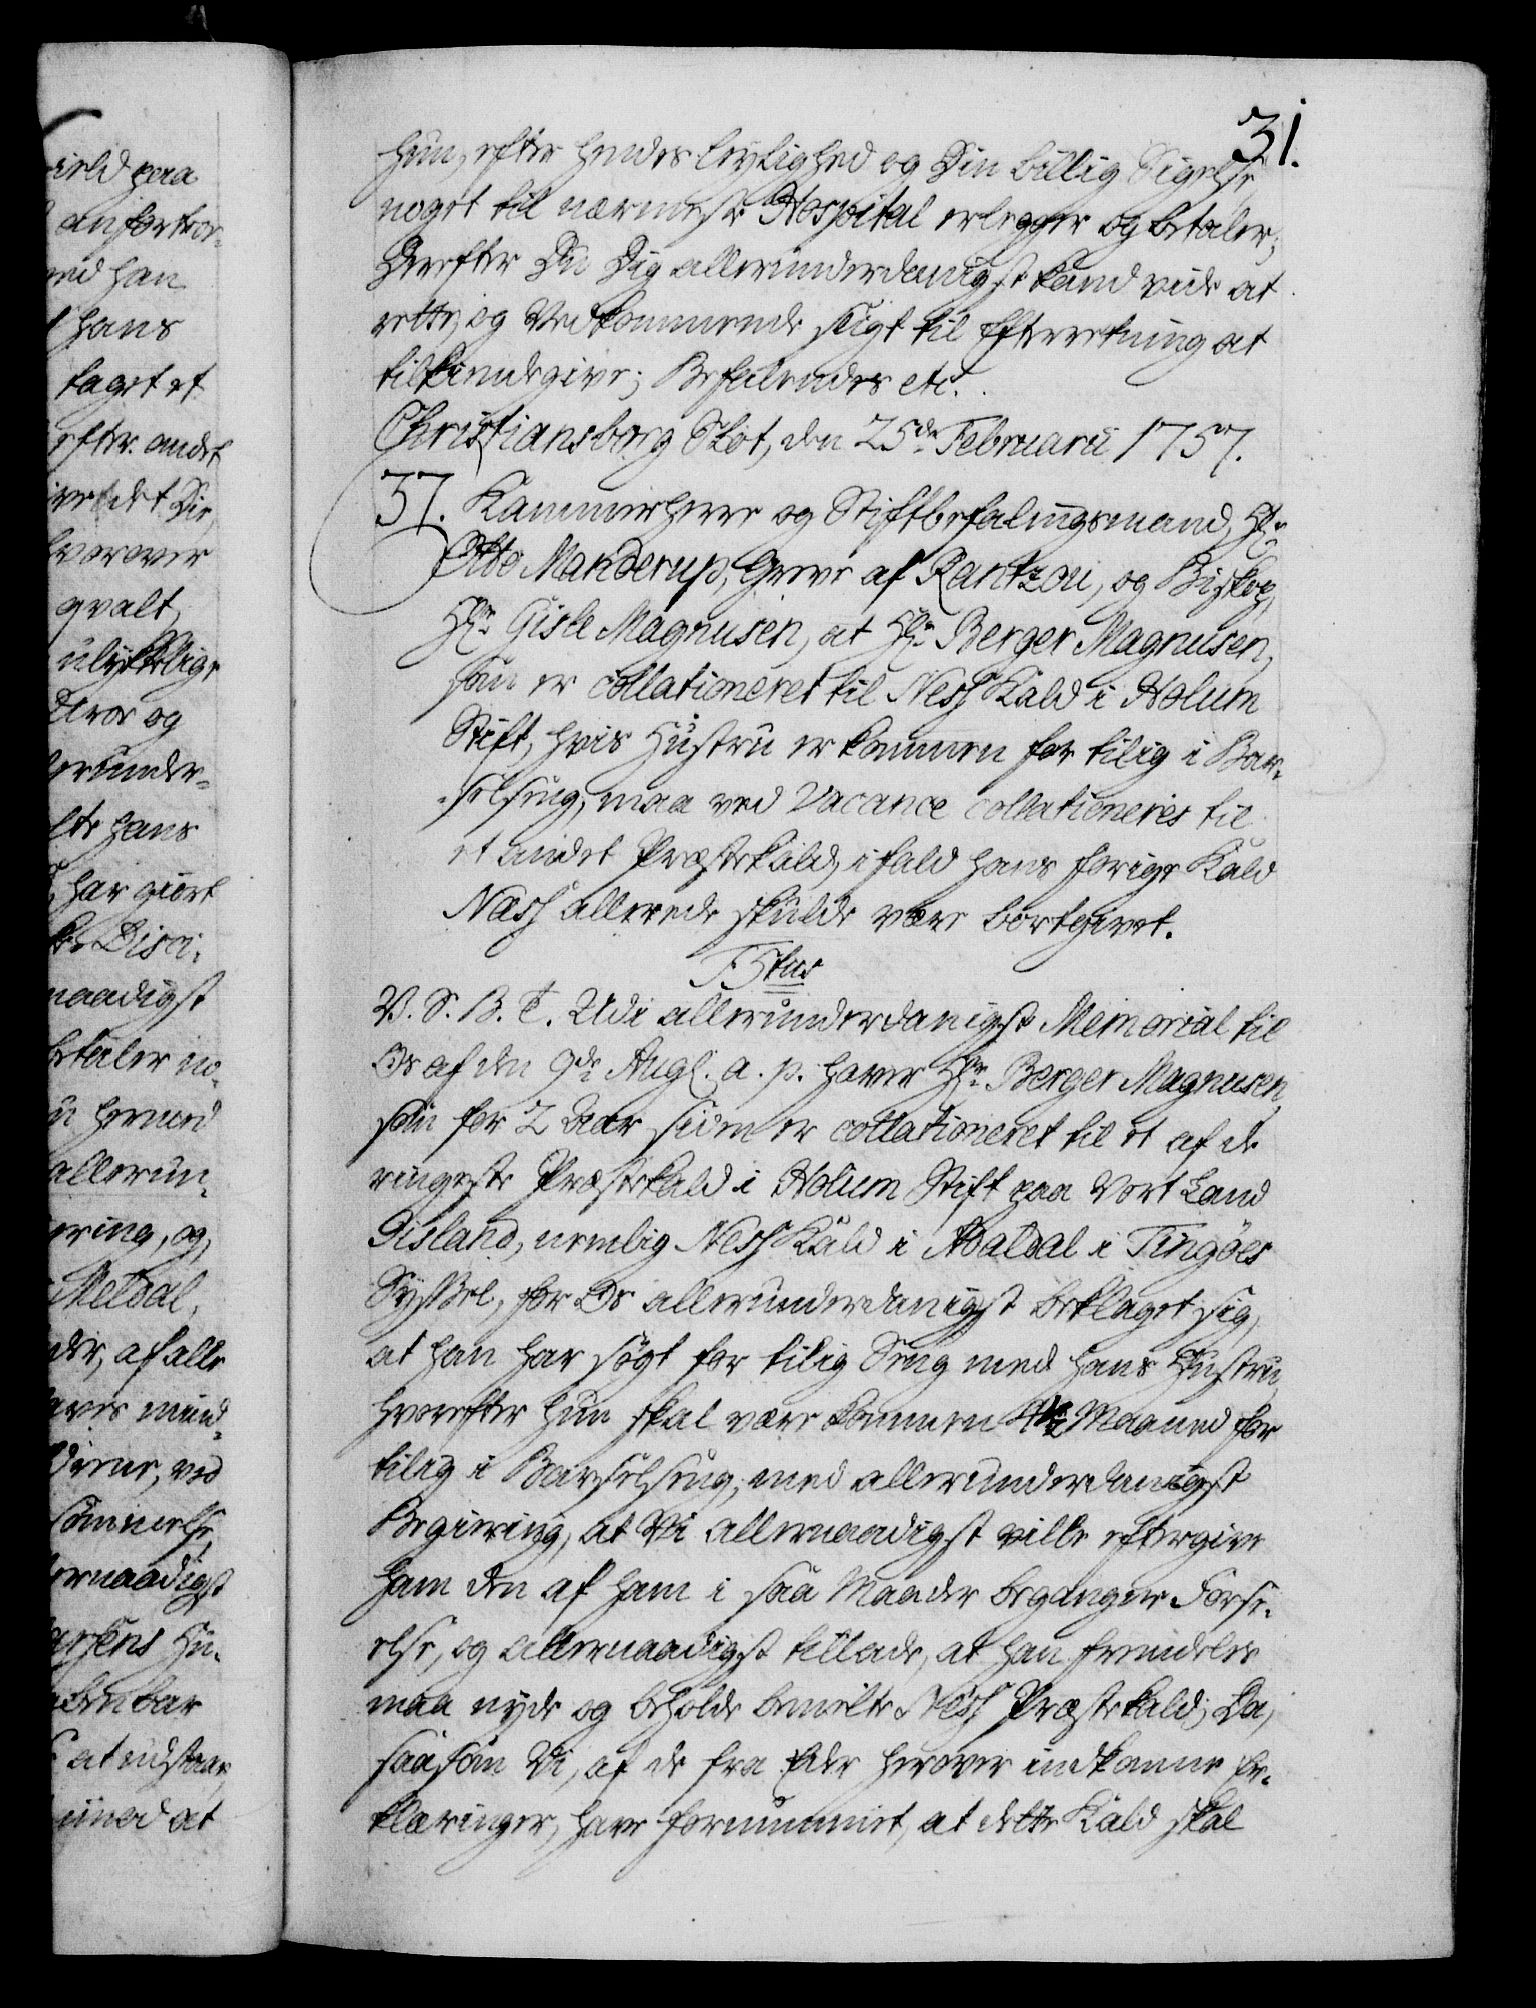 31.
hun, efter hendes leylighed og Din billig Sigelse
noget til nærmeste Hospital erlegger og betaler;
Derefter Du Dig allerunderdanigst kand viide at
rette, og Vedkommende sligt til Efterretning at
tilkiendegive; Befalendes etc.
Christiansborg Slot, den 25de Februarii 1757.
37. Kammerherre og Stiftbefalingsmand, Hr.
Otto Manderup, Greve af Rantzou, og Biskop,
Hr. Gisle Magnusen, at Hr. Berger Magnusen,
som er collationeret til Ness Kald i Holum
Stift, hvis Hustru er kommen for tilig i Bar-
selseng, maa ved Vacance collationeres til
et andet Præstekald, ifald hans forige Kald
Næss allerede skulde være bortgivet.
F5tus
V. S. B. T. Udi allerunderdanigst Memorial til
Os af den 9de Aug. a. p. haver Hr. Berger Magnusen
som for 2 Aar siden er collationeret til et af de
ringeste Præstekald i Holum Stift paa Vort Land
Iisland, nemlig Ness Kald i Adaldal i Tingöes
Syssel, for Os allerunderdanigst beklaget sig,
at han har søgt for tilig Seng med hans Hustru,
hvorefter hun skal være kommen Maaned for
tilig i Barselseng, med allerunderdanigst
Begiering, at Vi allernaadigst ville eftergive
ham den af ham i saa Maader begangne Forse-
else, og allernaadigst tillade, at han fremdeles
maa nyde og beholde bemelte Ness Præstekald; Da,
saasom Vi, af de fra Eder herover indkomne Er-
klæringer, have fornummet, at dette Kald skal
ield paa
anfortroe-
ed han
hans
taget et
efter andet
det Die,
hvorover
qvalt,
ulykkelige
og
erunder-
hans
har giort
Disci-
naadigst
betaler no-
hermed
allerun-
ering, og
Meldal,
der, af alle
mind-
ved
ernaadigst
Hu-
at udstaae
at